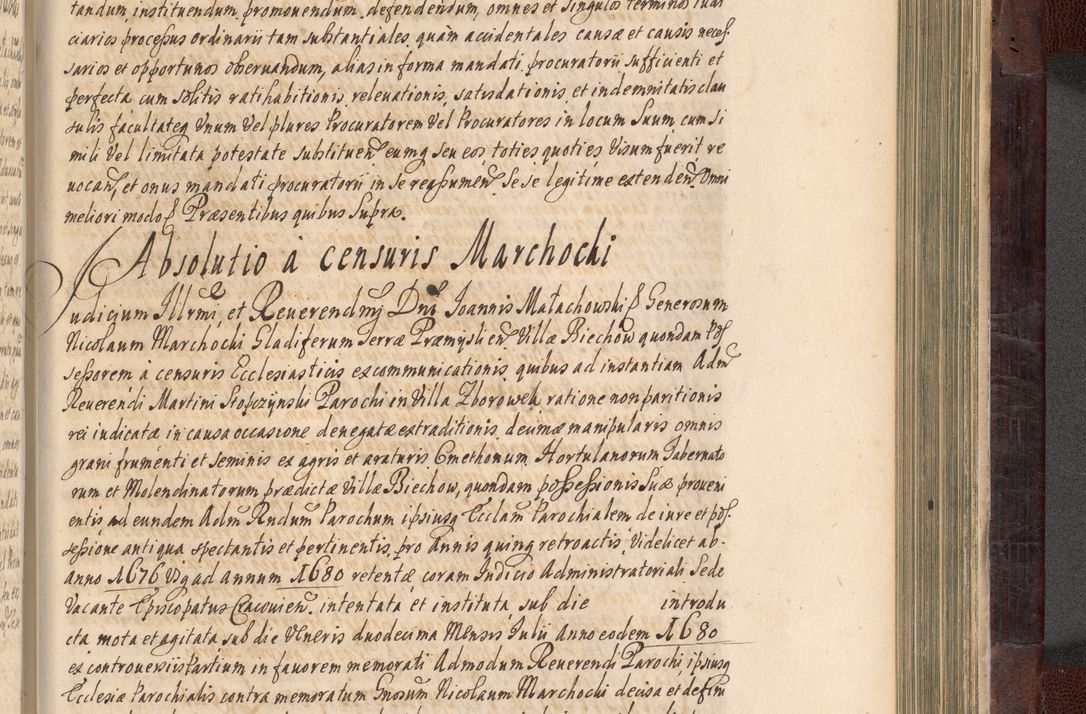 tandum, instituendum, promouendum, defendendum, omnes et singulos terminos iudi
ciarios processus ordinarii tam substantiales quam accidentales causæ et causis neces,
sarios et opportunos obseruandum, alias in forma mandati procuratorii sufficienti et
perfecta cum solitis ratihabitionis, releuationis, satisdationis, et indemnitatis clau
sulis facultateq Vnum Vel plures Procuratorem Vel Procuratores in locum Suum cum si
mili Vel limitata potestate substituen eumq seu eos, toties quoties Visum fuerit re
uocan, et onus mandati procuratorii in se reassumen Se se legitime extenden. Omni
meliori modo Præsentibus quibus Supra.
Absolutio à censuris Marchocki
Iudicium Illrmi, et Reuerendmi Dni Ioannis Małachowski Generosum
Nicolaum Marchocki Gladiferum Terræ Præmyslien Villæ Biechow quondam Pos
sessorem à censuris Ecclesiasticis excommunicationis quibus ad instantiam Adm
Reuerendi Martini Stopczynski Parochi in Villa Zborowek ratione non paritionis
rei iudicatæ in causa occasione denegatæ extraditionis decimæ manipularis omnis
grani frumenti et seminis ex agris et araturis Cmethonum, Hortulanorum Tabernato
rum et Molendinatorum prædictæ Villæ Biechow, quondam possessionis Suæ proueni
entis ad eundem Adm Rndum Parochum ipsiusq Ecclam Parochialem de iure et pos,
sessione antiqua spectantis et pertinentis, pro Annis quinq retroactis Videlicet ab-
anno 1676 Vsq ad Annum 1680 retentæ coram Iudicio Administratoriali Sede
Vacante Episcopatus Cracouien. intentata et instituta sub die introdu
cta mota et agitata sub die Veneris duodecima Mensis Iulii Anno eodem 1680
ex controuersiis Partium in fauorem memorati Admodum Reuerendi Parochi, ipsiusq
Ecclesiæ Parochialis contra memoratum Gnosum Nicolaum Marchocki decisa et defini